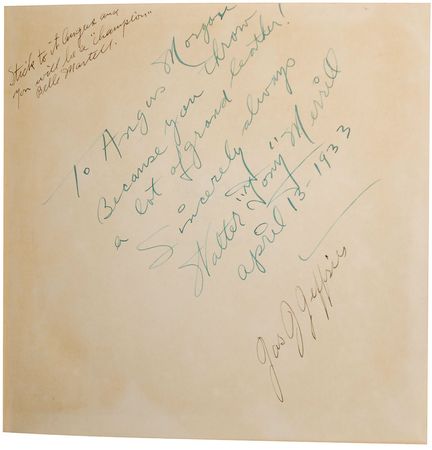 Stick to it Angus and
you will be a "Champion"
Belle Martell.
To Angus Morgan
Because you throw
a lot of grand leather!
Sincerely always
Walter "Tony" Merrill
April 13-1933
Jas J Jeffries